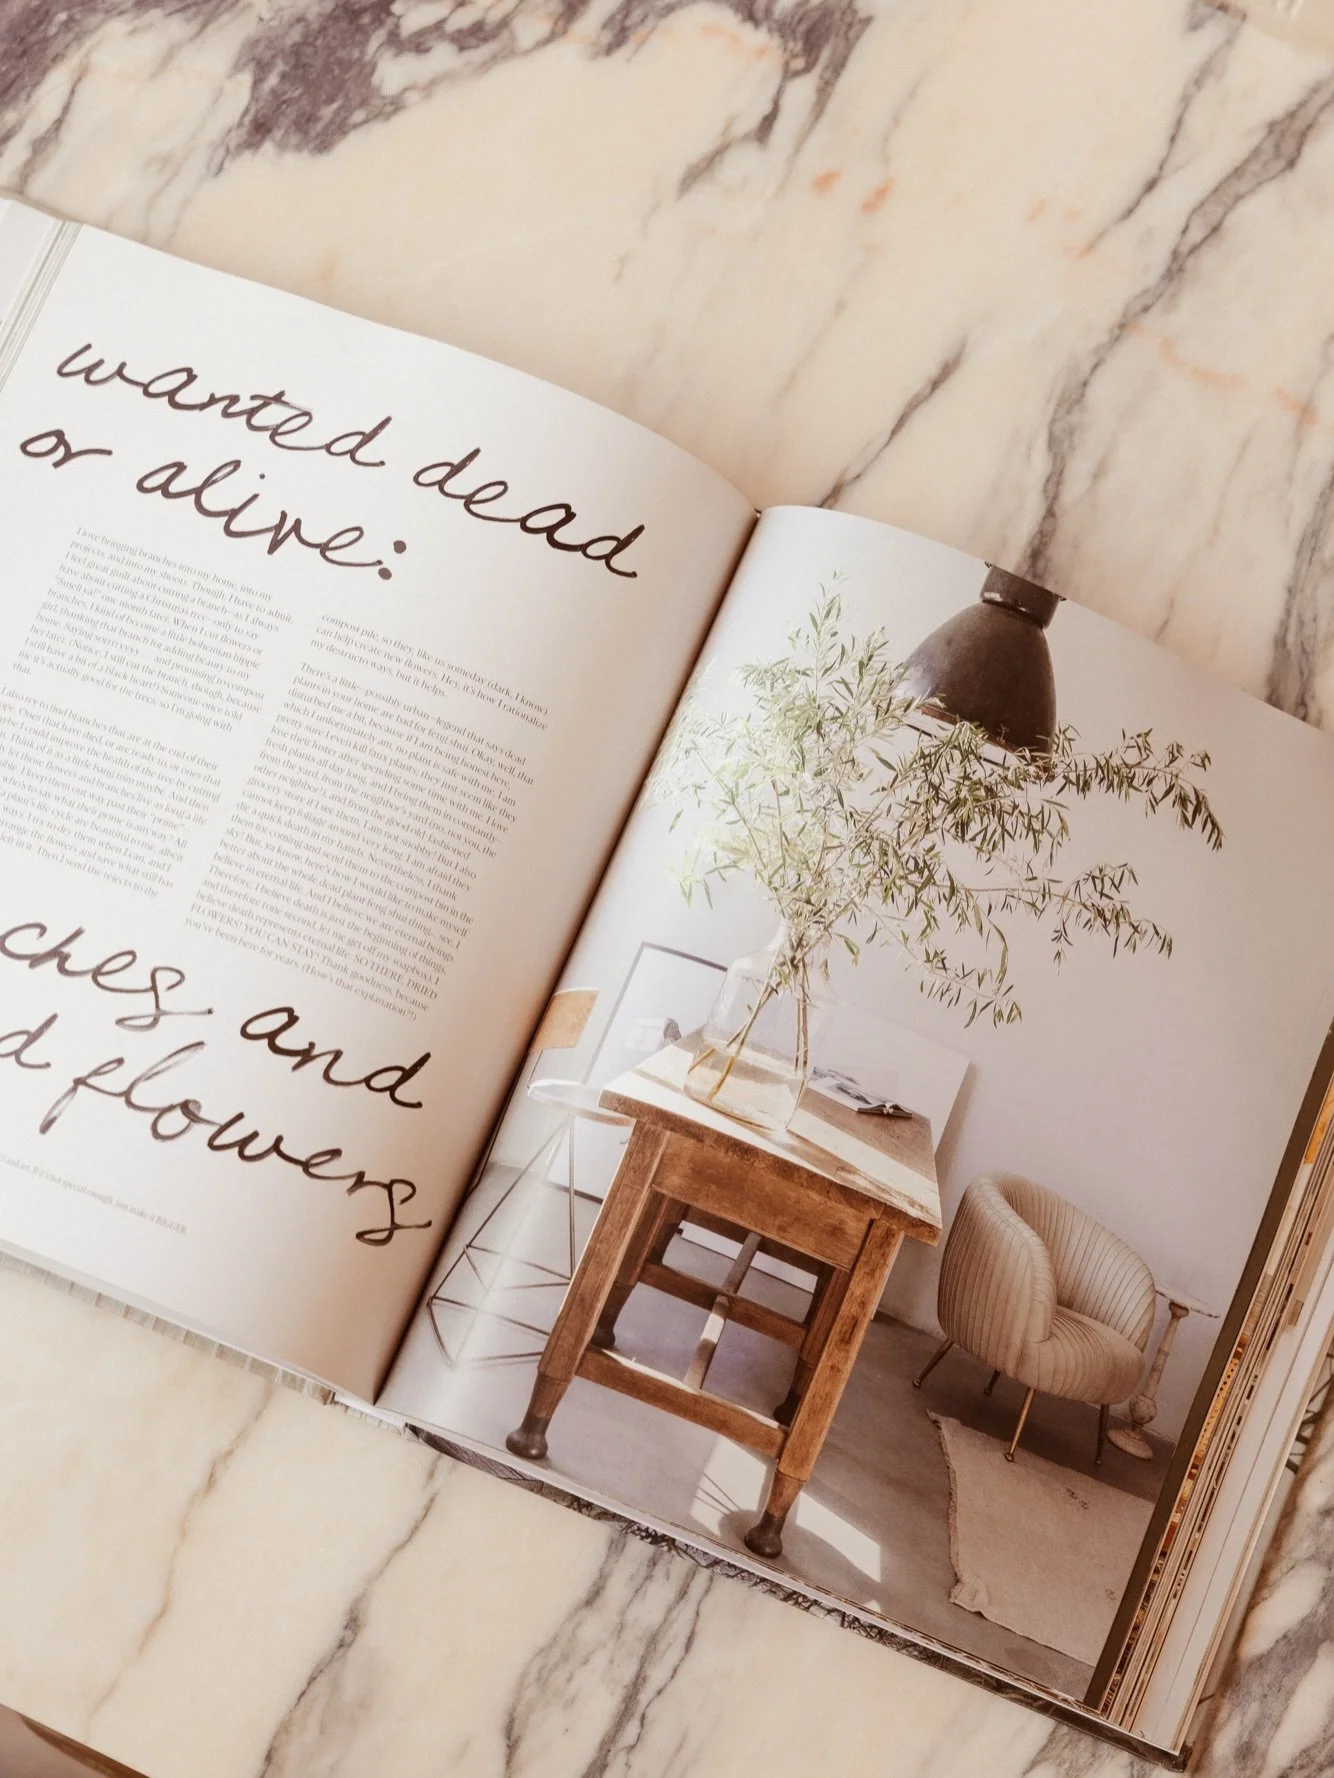 wanted dead
or alive:
I love bringing branches into my home, into my
projects, and into my shoots. Though, I have to admit,
I feel great guilt about cutting a branch—as I always
have about cutting a Christmas tree—only to say
"Smell ya!" one month later. When I cut flowers or
branches, I kind of become a little bohemian hippie
girl, thanking that branch for adding beauty to my
home. Saying sorryyyyy . . . and promising to compost
her later. (Notice, I still cut the branch, though, because
I still have a bit of a black heart!) Someone once told
me it's actually good for the trees, so I'm going with
that.
I also try to find branches that are at the end of their
Ones that have died, or are ready to, or ones that
I could improve the health of the tree, by cutting
Think of it as a little bang trim maybe. And then
let those flowers and branches live as long a life
I keep them out way past their "prime"
who's to say what their prime is anyway? All
plant's life cycle are beautiful to me, albeit
I try to dry them when I can, and I
the flowers, and save what still has
in it. Then I send the rejects to the
compost pile, so they, like us someday (dark, I know)
can help create new flowers. Hey, it's how I rationalize
my destructo ways, but it helps.
There's a little—possibly urban—legend that says dead
plants in your home are bad feng shui. Okay, well, that
disturbed me a bit, because if I am being honest here,
which I unfortunately am, no plant is safe with me. I am
pretty sure I even kill faux plants; they just seem like they
lose their luster after spending some time with me. I love
fresh plants all day long, and I bring them in constantly,
from the yard, from the neighbor's yard (no, not you, the
other neighbor), and from the good old-fashioned
grocery store if I see them. I am not snobby! But I also
cannot keep foliage around very long. I am afraid they
die a quick death in my hands. Nevertheless, I thank
them for coming and send them to the compost bin in the
sky! But, ya know, here's how I would like to make myself
better about the whole dead plant feng shui thing . . . see, I
believe in eternal life. And I believe we are eternal beings.
Therefore, I believe death is just the beginning of things,
and therefore (one second, let me get off my soapbox), I
believe death represents eternal life. SO THERE, DRIED
FLOWERS! YOU CAN STAY! Thank goodness, because
you've been here for years. (How's that explanation?!)
ches and
d flowers
and art. If it's not special enough, just make it BIGGER.